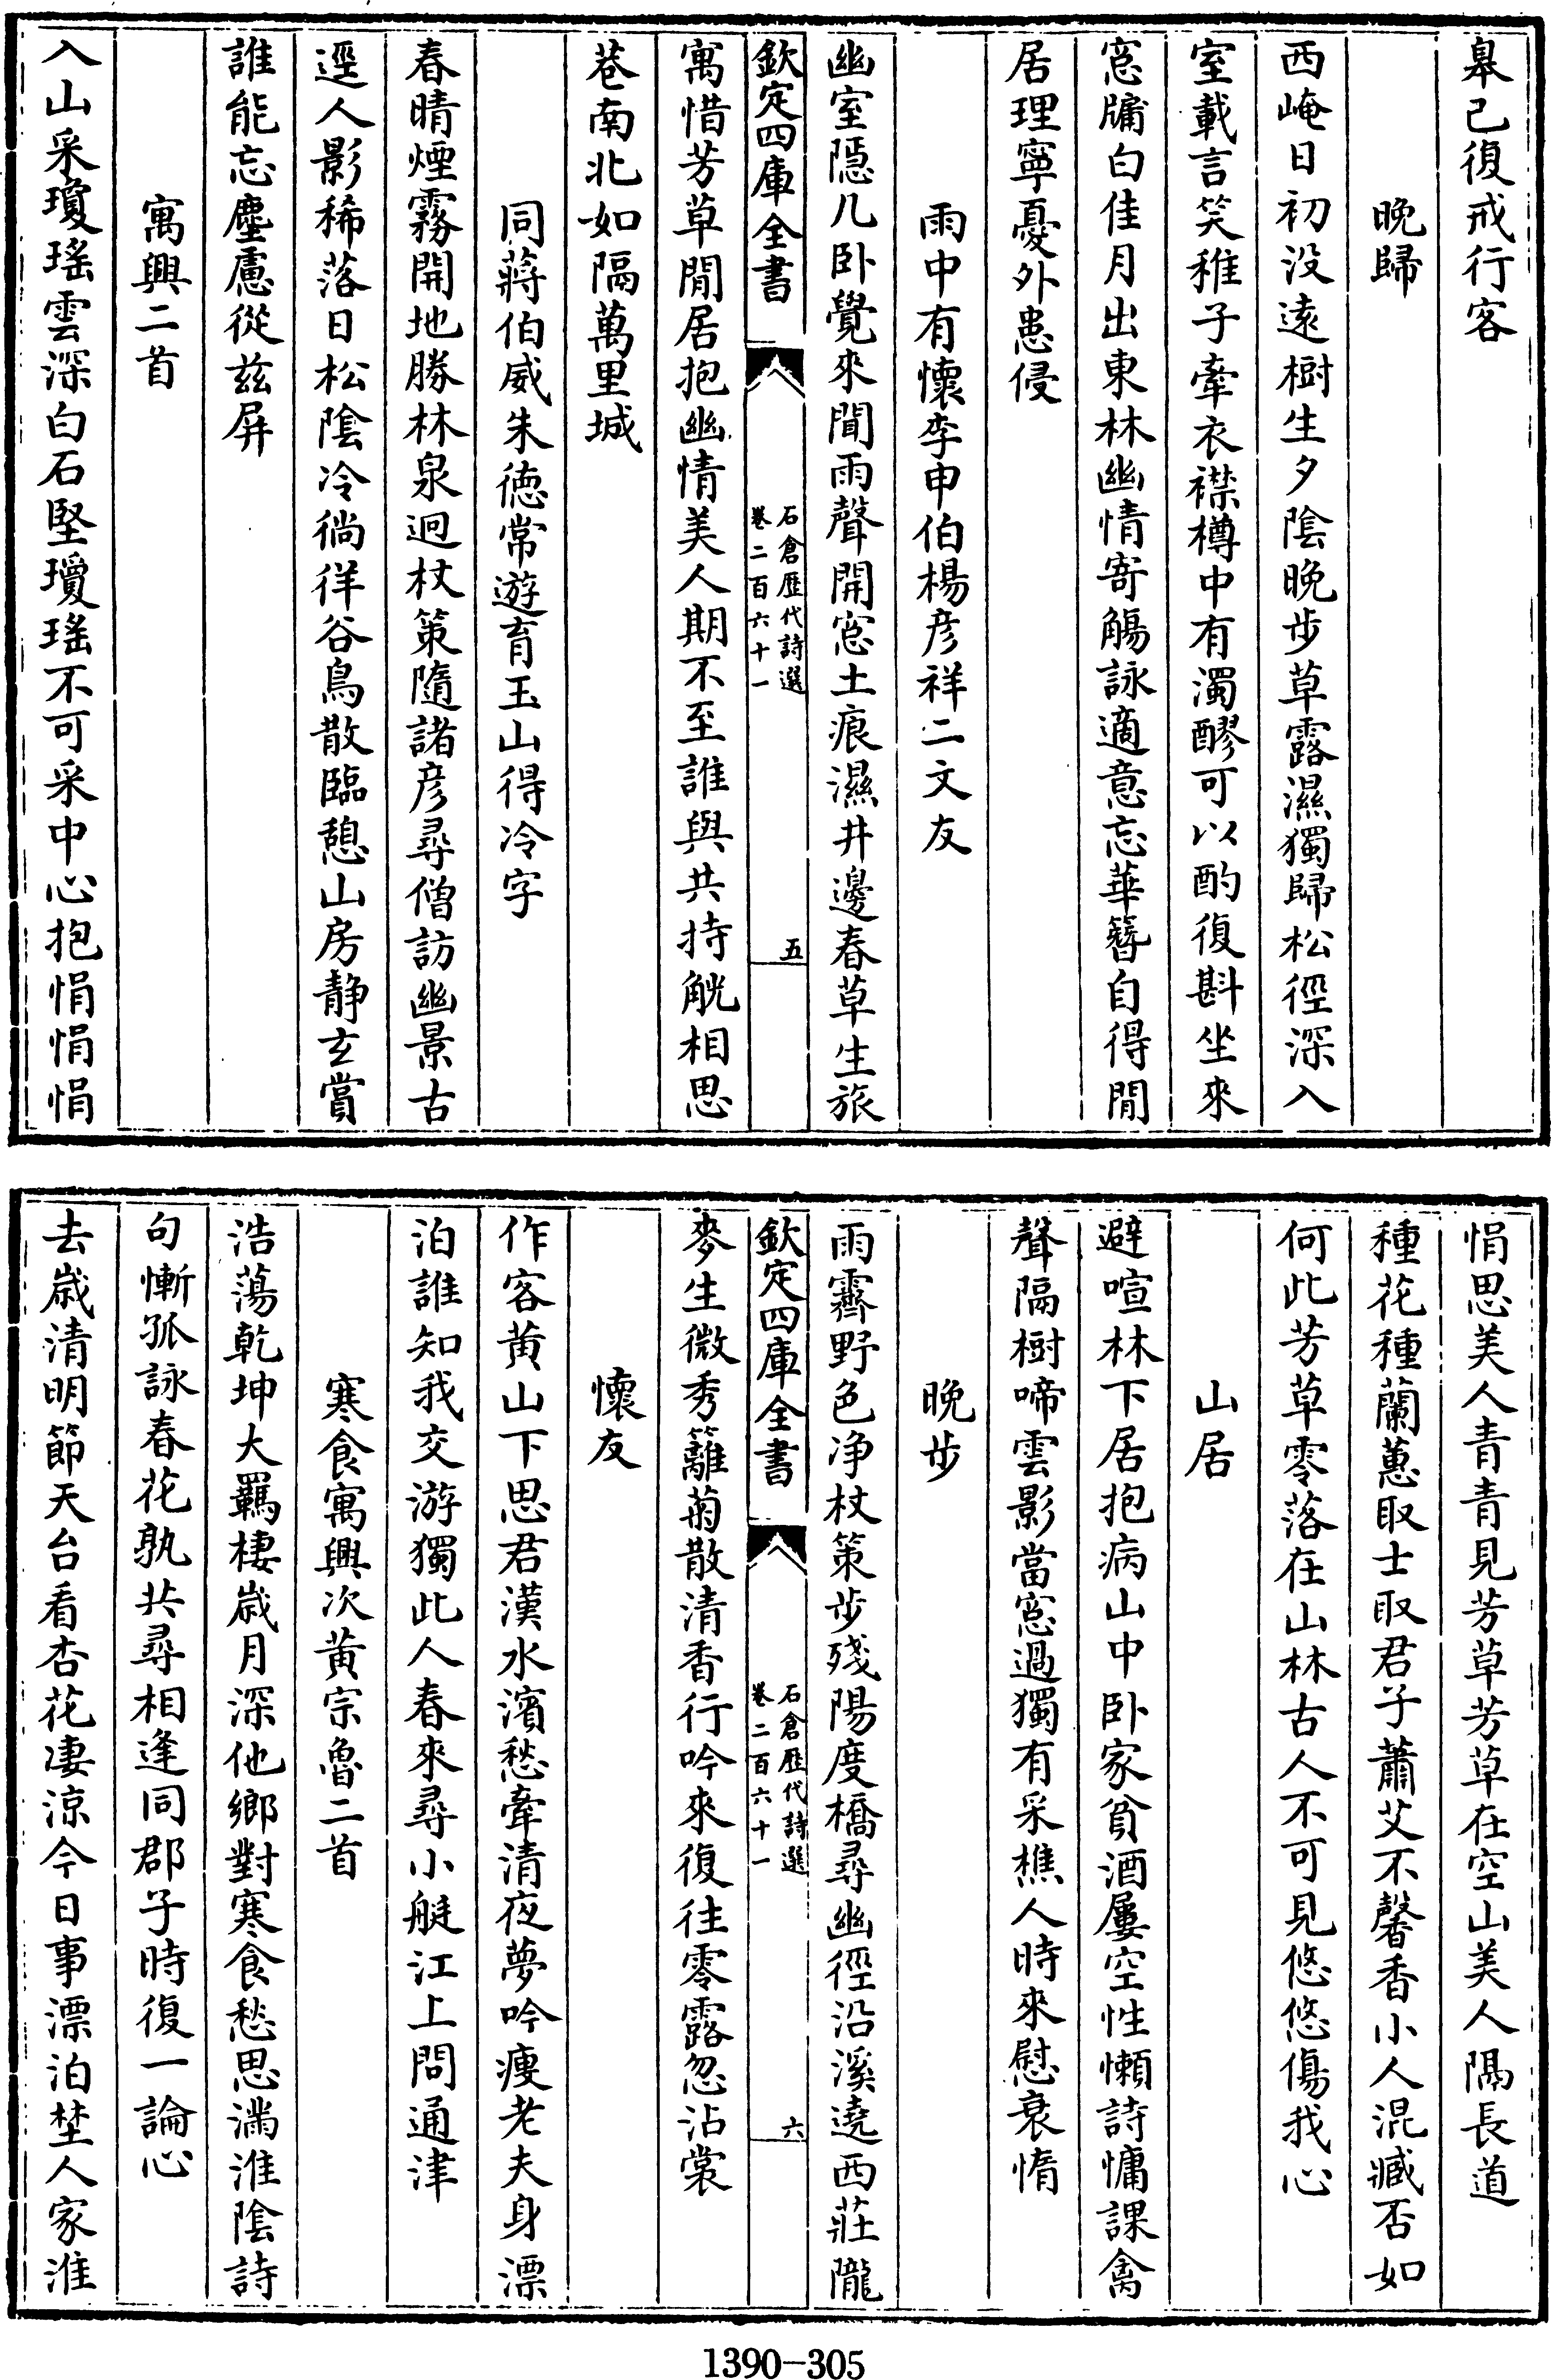 皋已復戒行客
晚歸
西崦日初没遠樹生夕陰晚步草露濕獨歸松徑深入
室載言笑稚子牽衣襟樽中有濁醪可以酌復斟坐來
窓牖白佳月出東林幽情寄觴詠適意忘華簪自得閒
居理寧憂外患侵
雨中有懷李申伯楊彦祥二文友
幽室隱几卧覺來聞雨聲開窓土痕濕井邊春草生旅
欽定四庫全書
石倉歷代詩選
卷二百六十一
五
寓惜芳草閒居抱幽情美人期不至誰與共持觥相思
巷南北如隔萬里城
同蔣伯威朱德常遊育玉山得冷字
春晴煙霧開地勝林泉迥杖策隨諸彦尋僧訪幽景古
逕人影稀落日松陰冷徜徉谷鳥散臨憩山房静玄賞
誰能忘塵慮從兹屏
寓興二首
入山采瓊瑶雲深白石堅瓊瑶不可采中心抱悁悁悁
悁思美人青青見芳草芳草在空山美人隔長道
種花種蘭蕙取士取君子蕭艾不馨香小人混臧否如
何此芳草零落在山林古人不可見悠悠傷我心
山居
避喧林下居抱病山中卧家貧酒屢空性懶詩慵課禽
聲隔樹啼雲影當窓過獨有采樵人時來慰衰惰
晚步
雨霽野色净杖策步殘陽度橋尋幽徑沿溪遶西莊隴
欽定四庫全書
石倉歷代詩選
卷二百六十一
六
麥生微秀籬菊散清香行吟來復往零露忽沾裳
懷友
作客黄山下思君漢水濱愁牽清夜夢吟瘦老夫身漂
泊誰知我交游獨此人春來尋小艇江上問通津
寒食寓興次黄宗魯二首
浩蕩乾坤大羈棲歲月深他鄉對寒食愁思滿淮陰詩
句慚孤詠春花孰共尋相逢同郡子時復一論心
去歲清明節天台看杏花凄涼今日事漂泊埜人家淮
1390-305